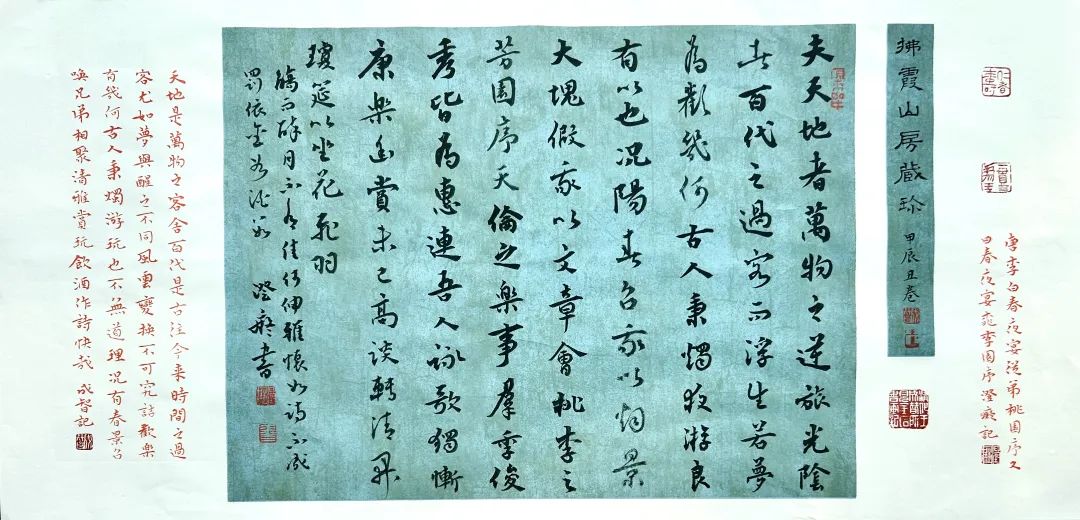 唐李白春夜宴從弟桃園序又
曰春夜宴桃李園序澄癡記
拂霞山房藏珍 甲辰丑卷
夫天地者萬物之逆旅光陰
者百代之過客而浮生若夢
為歡幾何古人秉燭夜游良
有以也况陽春召我以烟景
大塊假我以文章會桃李之
芳園序天倫之樂事羣季俊
秀皆為惠連吾人詠歌獨慚
康樂幽賞未已高談轉清開
瓊筵以坐花飛羽
觴而醉月不有佳作伸雅懷如詩不成
罰依金谷酒數 澄癡書
天地是萬物之客舍百代是古往今來時間之過
客尤如夢與醒之不同風雲變換不可究詰歡樂
有幾何古人秉燭游玩也不無道理况有春景召
喚兄弟相聚清雅賞玩飲酒作詩快哉 成督記